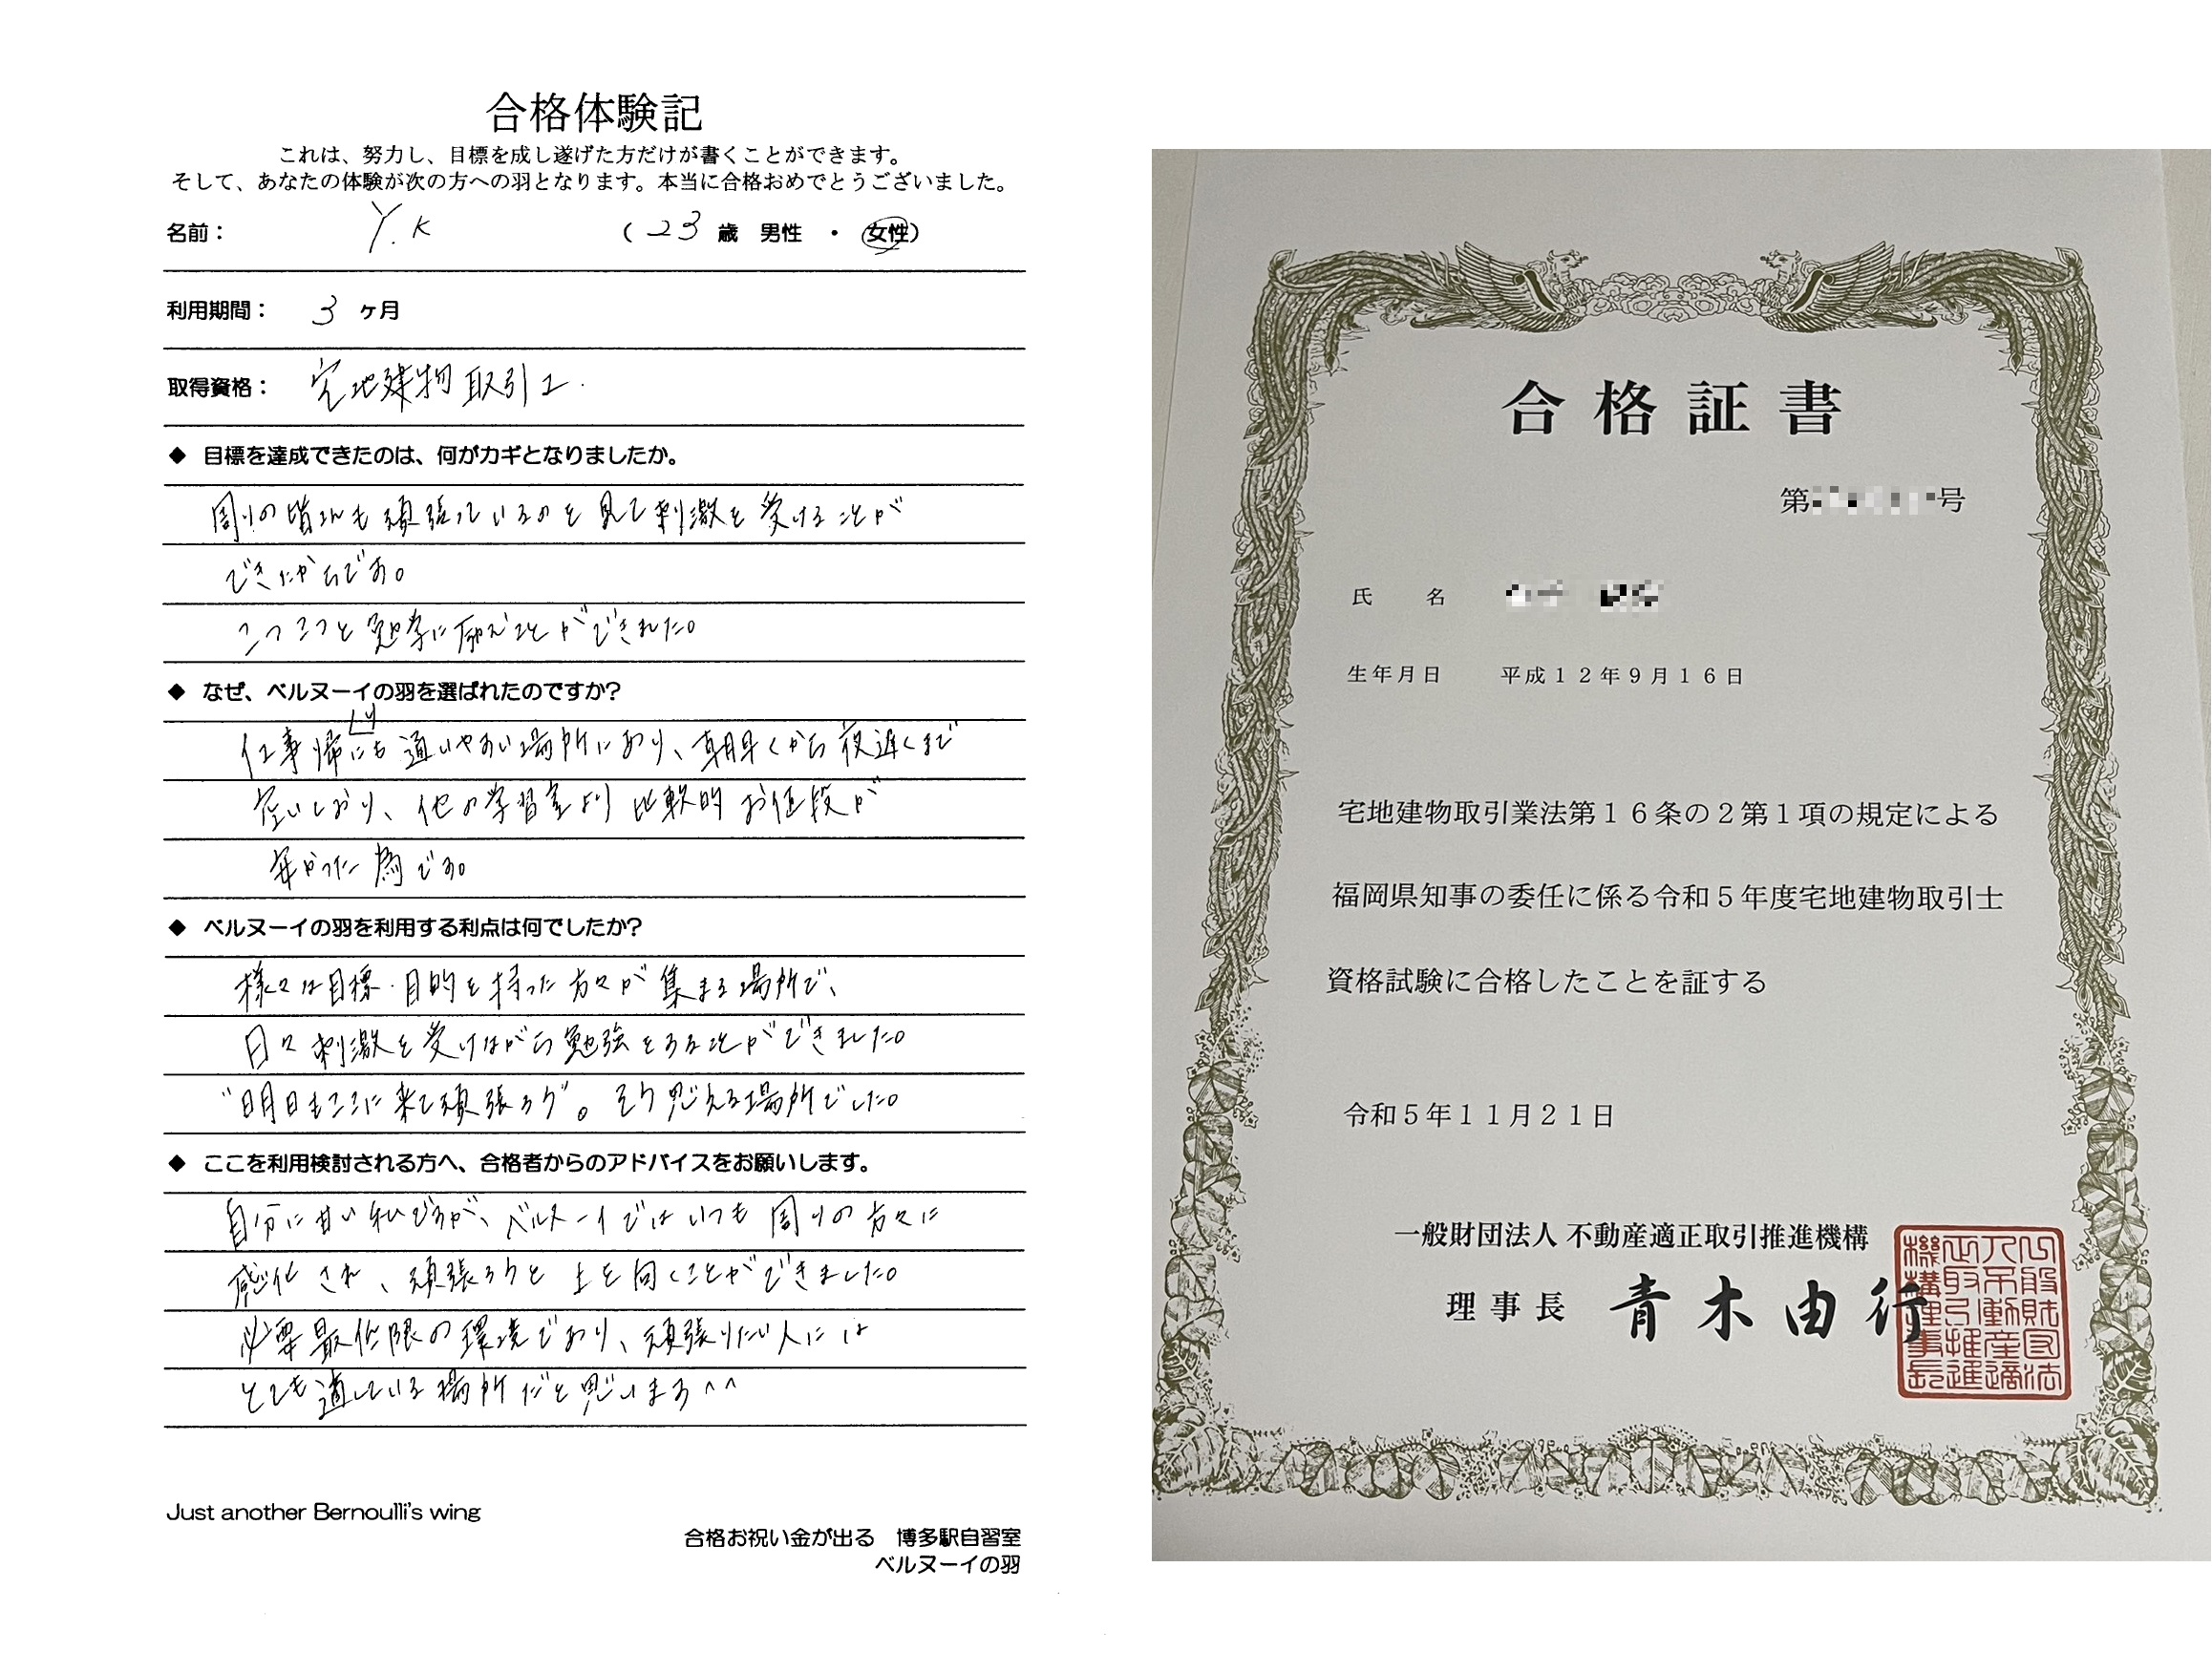 合格体験記
これは、努力し、目標を成し遂げた方だけが書くことができます。
そして、あなたの体験が次の方への羽となります。本当に合格おめでとうございました。
名前： Y.K （ 23 歳 男性 ・ 女性）
利用期間： 3 ヶ月
取得資格： 宅地建物取引士.
◆ 目標を達成できたのは、何がカギとなりましたか。
周りの皆さんも頑張っているのを見て刺激を受けることが
できたからです。
コツコツと勉学に励むことができました。
◆ なぜ、ベルヌーイの羽を選ばれたのですか?
仕事帰りにも通いやすい場所にあり、朝早くから夜遅くまで
空いており、他の学習室より比較的お値段が
安かった為です。
◆ ベルヌーイの羽を利用する利点は何でしたか?
様々な目標・目的を持った方々が集まる場所で、
日々刺激を受けながら勉強をすることができました。
"明日もここに来て頑張ろう"。そう思える場所でした。
◆ ここを利用検討される方へ、合格者からのアドバイスをお願いします。
自分に甘い私ですが、ベルヌーイではいつも周りの方々に
感化され、頑張ろうと上を向くことができました。
必要最低限の環境であり、頑張りたい人には
とても適している場所だと思います^^
Just another Bernoulli's wing
合格お祝い金が出る 博多駅自習室
ベルヌーイの羽
合格証書
第 号
氏 名
生年月日 平成１２年９月１６日
宅地建物取引業法第１６条の２第１項の規定による
福岡県知事の委任に係る令和５年度宅地建物取引士
資格試験に合格したことを証する
令和５年１１月２１日
一般財団法人 不動産適正取引推進機構
理事長 青木由行
一般財団法人不動産適正取引推進機構理事長